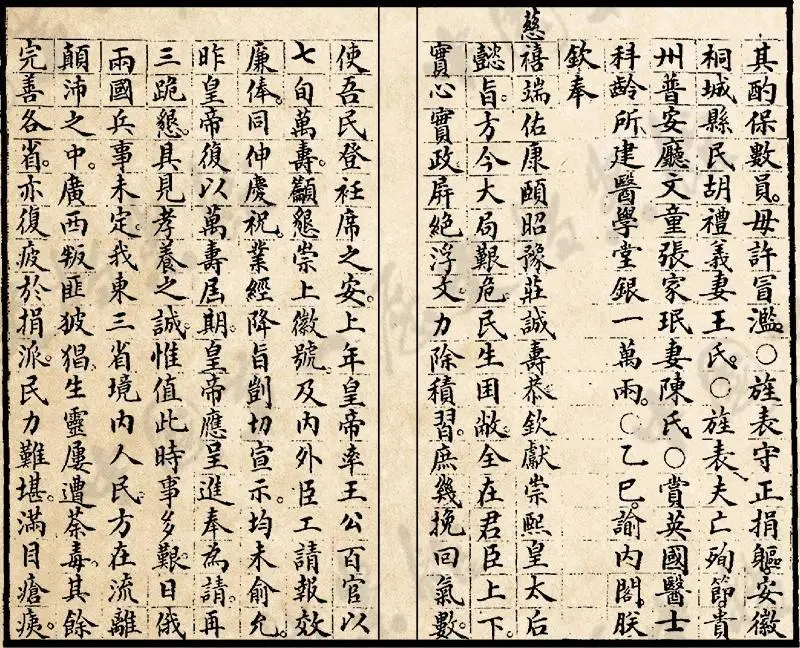 其酌保數員。毋許冒濫。○旌表守正捐軀安徽
桐城縣民胡禮義妻王氏。○旌表夫亡殉節貴
州普安廳文童張家珉妻陳氏。○賞英國醫士
科齡所建醫學堂銀一萬兩。○乙巳。諭內閣。朕
欽奉
慈禧端佑康頤昭豫莊誠壽恭欽獻崇熙皇太后
懿旨。方今大局艱危。民生困敝。全在君臣上下。
實心實政。屏絕浮文。力除積習。庶幾挽回氣數。
使吾民登衽席之安。上年皇帝率王公百官以
七旬萬壽。籲懇崇上徽號。及內外臣工請報效
廉俸。同伸慶祝。業經降旨剴切宣示。均未俞允。
昨皇帝復以萬壽屆期。皇帝應呈進奉為請。再
三跪懇。具見孝養之誠。惟值此時事多艱。日俄
兩國兵事未定。我東三省境內人民。方在流離
顛沛之中。廣西叛匪披猖。生靈屢遭荼毒。其餘
完善各省。亦復疲於捐派。民力難堪。滿目瘡痍。